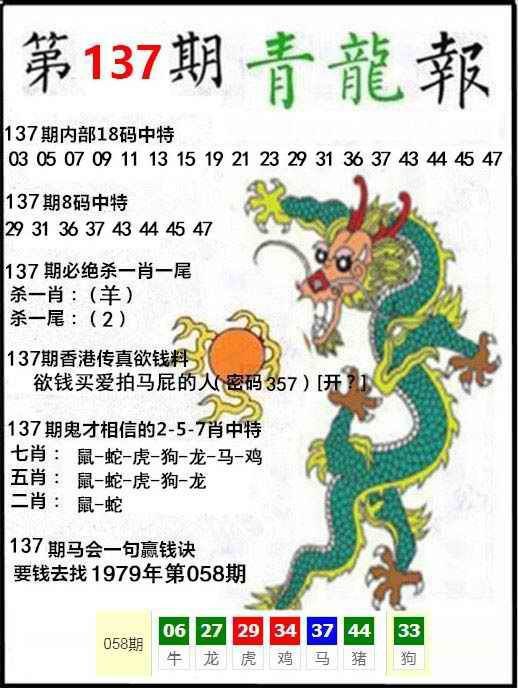 第137期 青龍報
137期内部18码中特
03 05 07 09 11 13 15 19 21 23 29 31 36 37 43 44 45 47
137期8码中特
29 31 36 37 43 44 45 47
137期必绝杀一肖一尾
杀一肖：（羊）
杀一尾：（2）
137期香港传真欲钱料
欲钱买爱拍马屁的人(密码357）[开？]
137期鬼才相信的2-5-7肖中特
七肖：鼠-蛇-虎-狗-龙-马-鸡
五肖：鼠-蛇-虎-狗-龙
二肖：鼠-蛇
137期马会一句赢钱诀
要钱去找1979年第058期
058期 06 27 29 34 37 44 33
牛 龙 虎 鸡 马 猪 狗